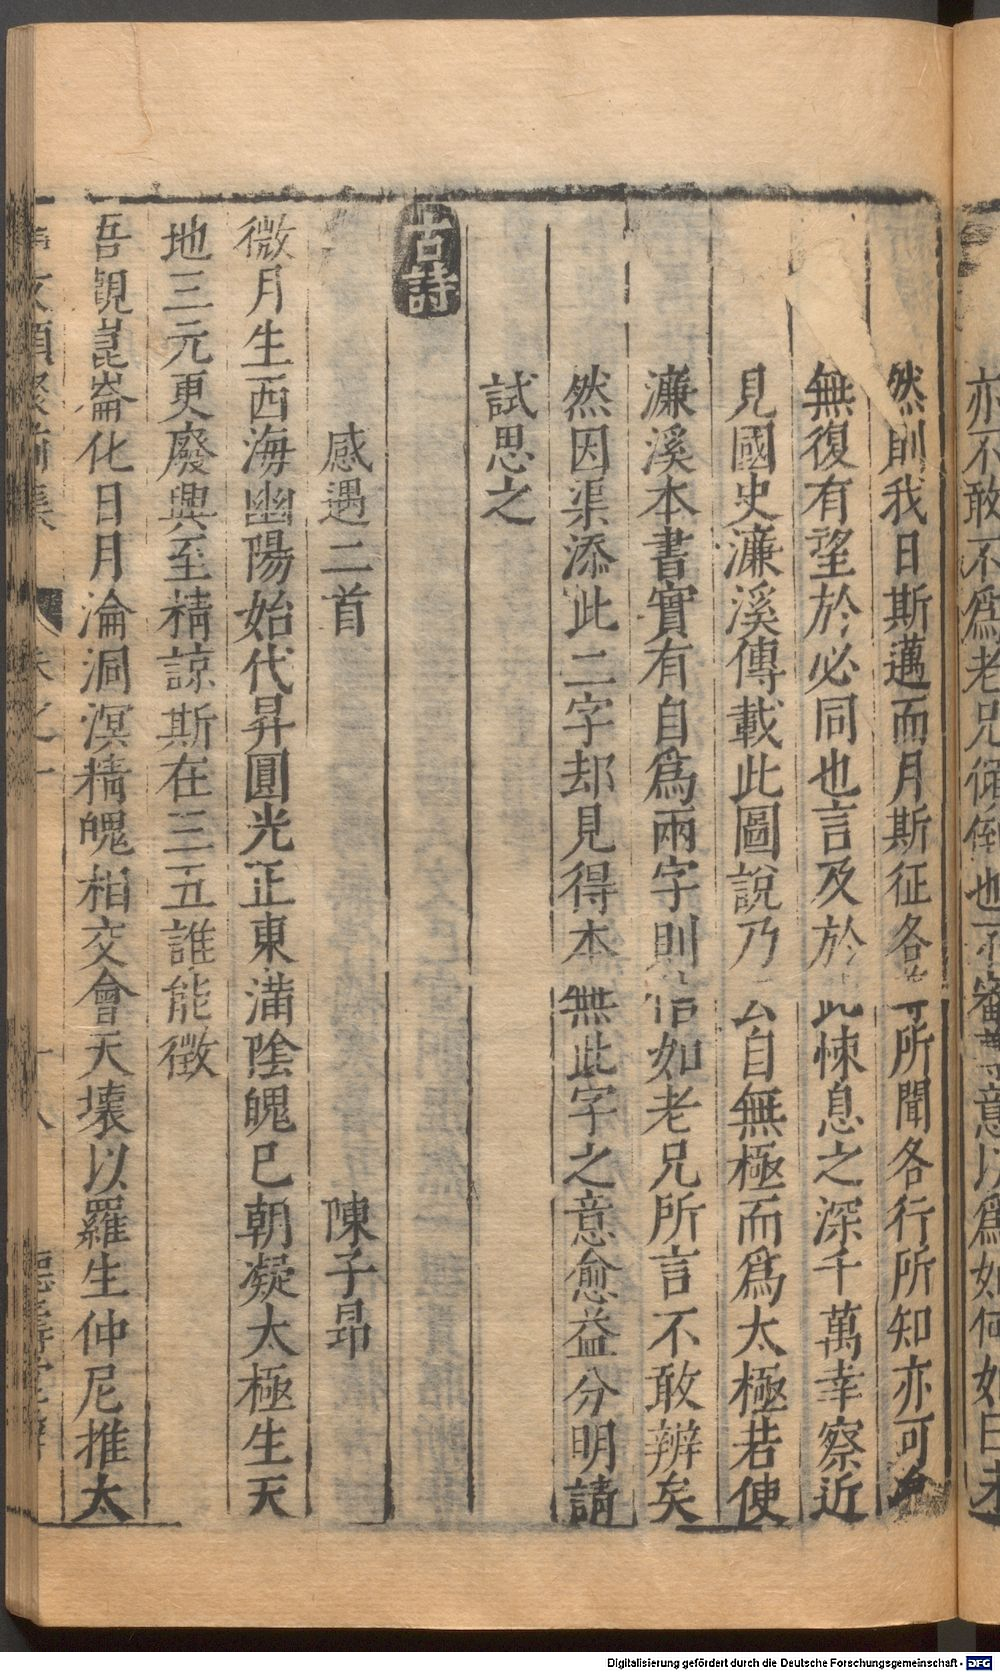 亦不敢不爲老兄傾倒也不審尊意以爲如何如曰未
然則我日斯邁而月斯征各 所聞各行所知亦可
無復有望於必同也言及於此悚息之深千萬幸察近
見國史濂溪傳載此圖說乃云自無極而爲太極若使
濂溪本書實有自爲兩字則信如老兄所言不敢辨矣
然因渠添此二字却見得本無此字之意愈益分明請
試思之
古詩
感遇二首 陳子昂
微月生西海幽陽始代昇圓光正東滿陰魄已朝凝太極生天
地三元更廢興至精諒斯在三五誰能徵
吾觀崑崙化日月淪洞溟精魄相交會天壤以羅生仲尼推太
事文類聚前集 卷之二 十八 德壽堂梓
Digitalisierung gefördert durch die Deutsche Forschungsgemeinschaft - DFG